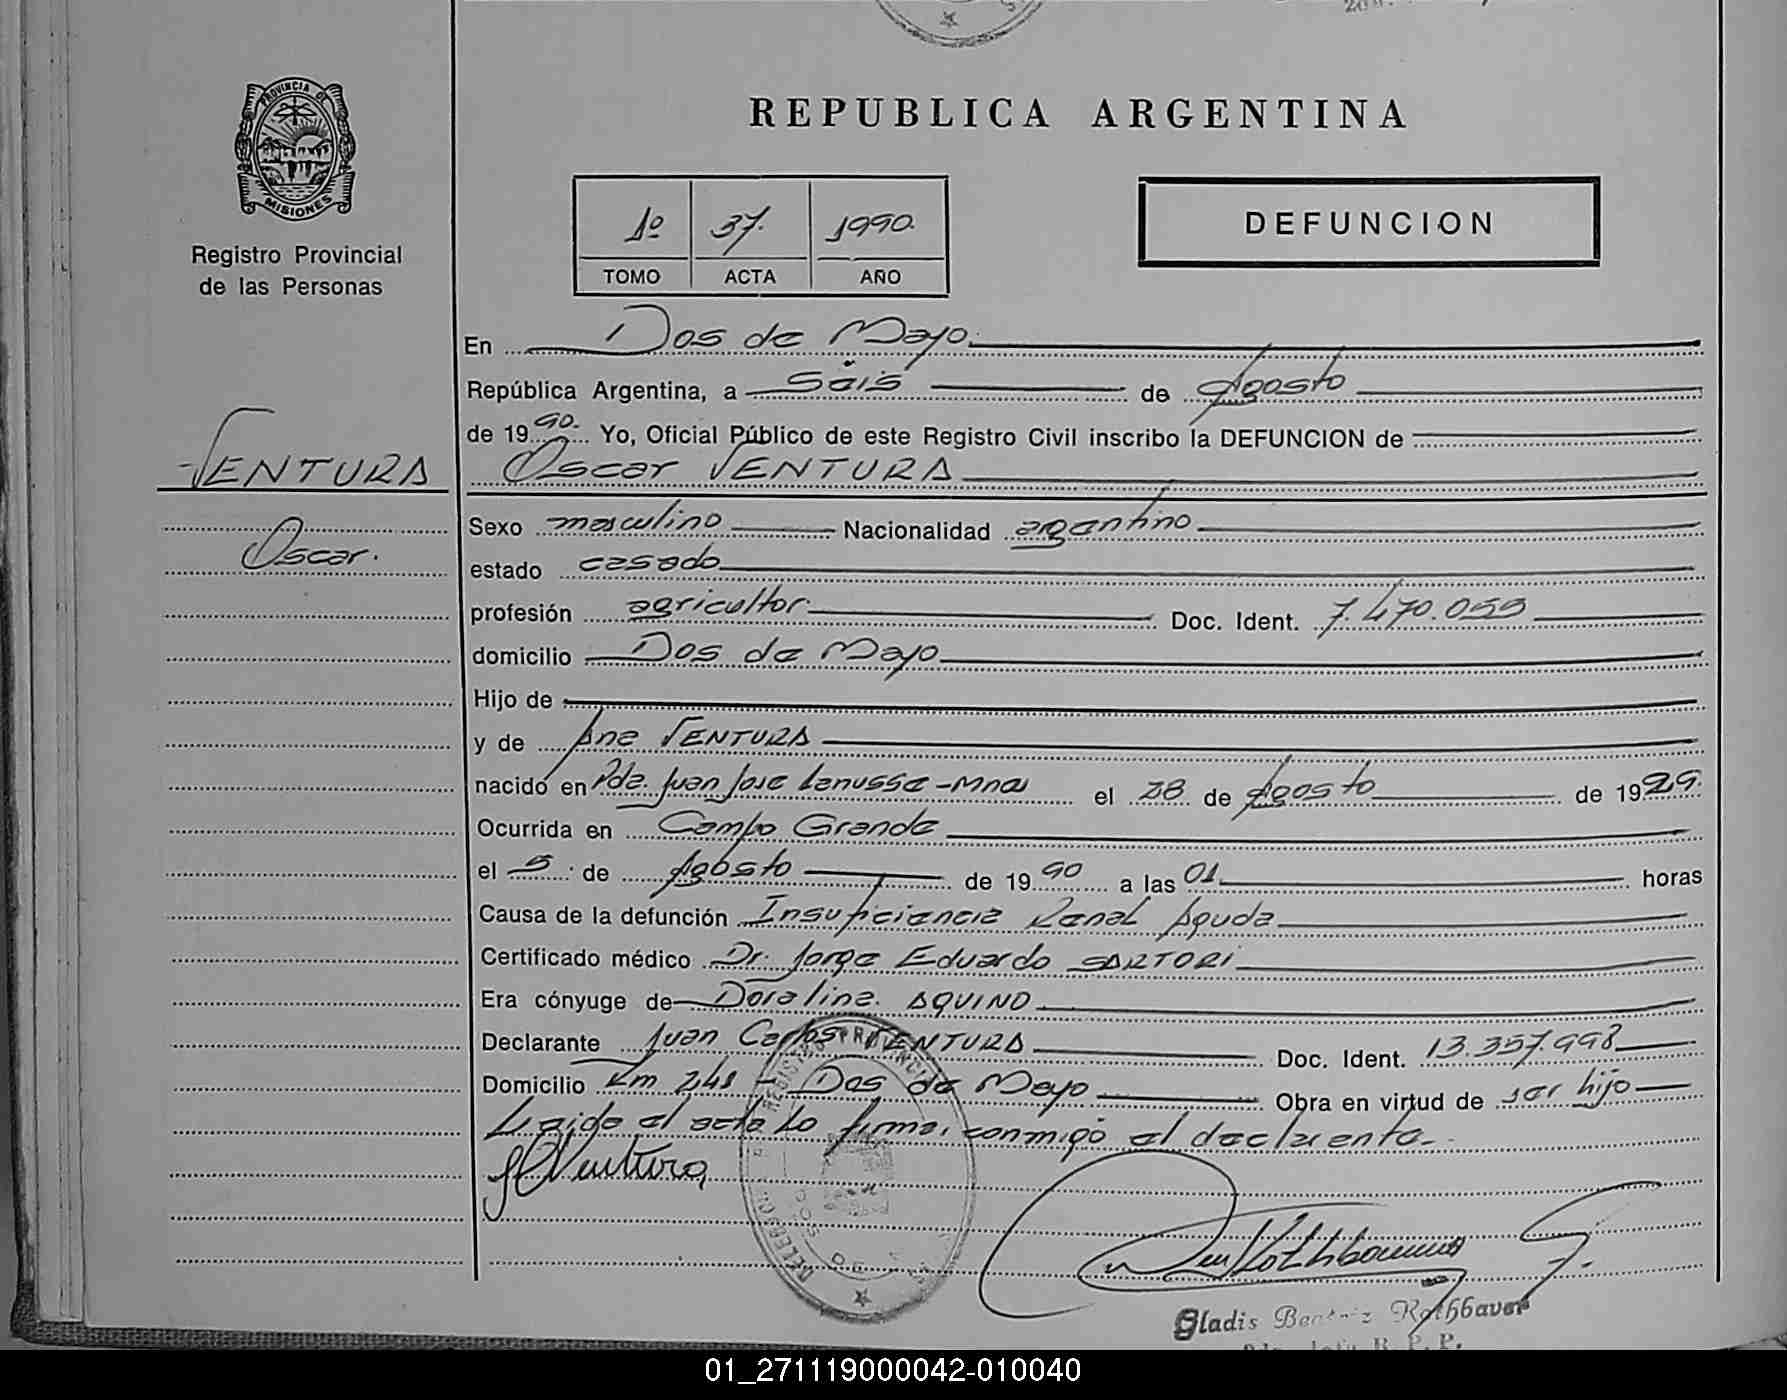 PROVINCIA DE
MISIONES
Registro Provincial
de las Personas
VENTURA
Oscar.
REPUBLICA ARGENTINA
1º 37. 1990.
TOMO ACTA AÑO
DEFUNCION
En Dos de Mayo.
República Argentina, a Séis de Agosto
de 1990. Yo, Oficial Público de este Registro Civil inscribo la DEFUNCION de
Oscar VENTURA
Sexo masculino Nacionalidad argentino
estado casado
profesión agricultor. Doc. Ident. 7.470.055
domicilio Dos de Mayo
Hijo de
y de Ana VENTURA
nacido en Pda. Juan Jose Lanusse-Mnes el 28 de Agosto de 1929.
Ocurrida en Campo Grande
el 5 de Agosto de 1990 a las 01 horas
Causa de la defunción Insuficiencia Renal Aguda
Certificado médico Dr. Jorge Eduardo SARTORI
Era cónyuge de Doralina. AQUINO
Declarante Juan Carlos VENTURA Doc. Ident. 13.357.998
Domicilio Km 248 - Dos de Mayo Obra en virtud de ser hijo
Leida el acta Lo firma, conmigo el declarente.
JCVentura
Gladis Beatriz Rothbaver
R. P. P.
01_271119000042-010040